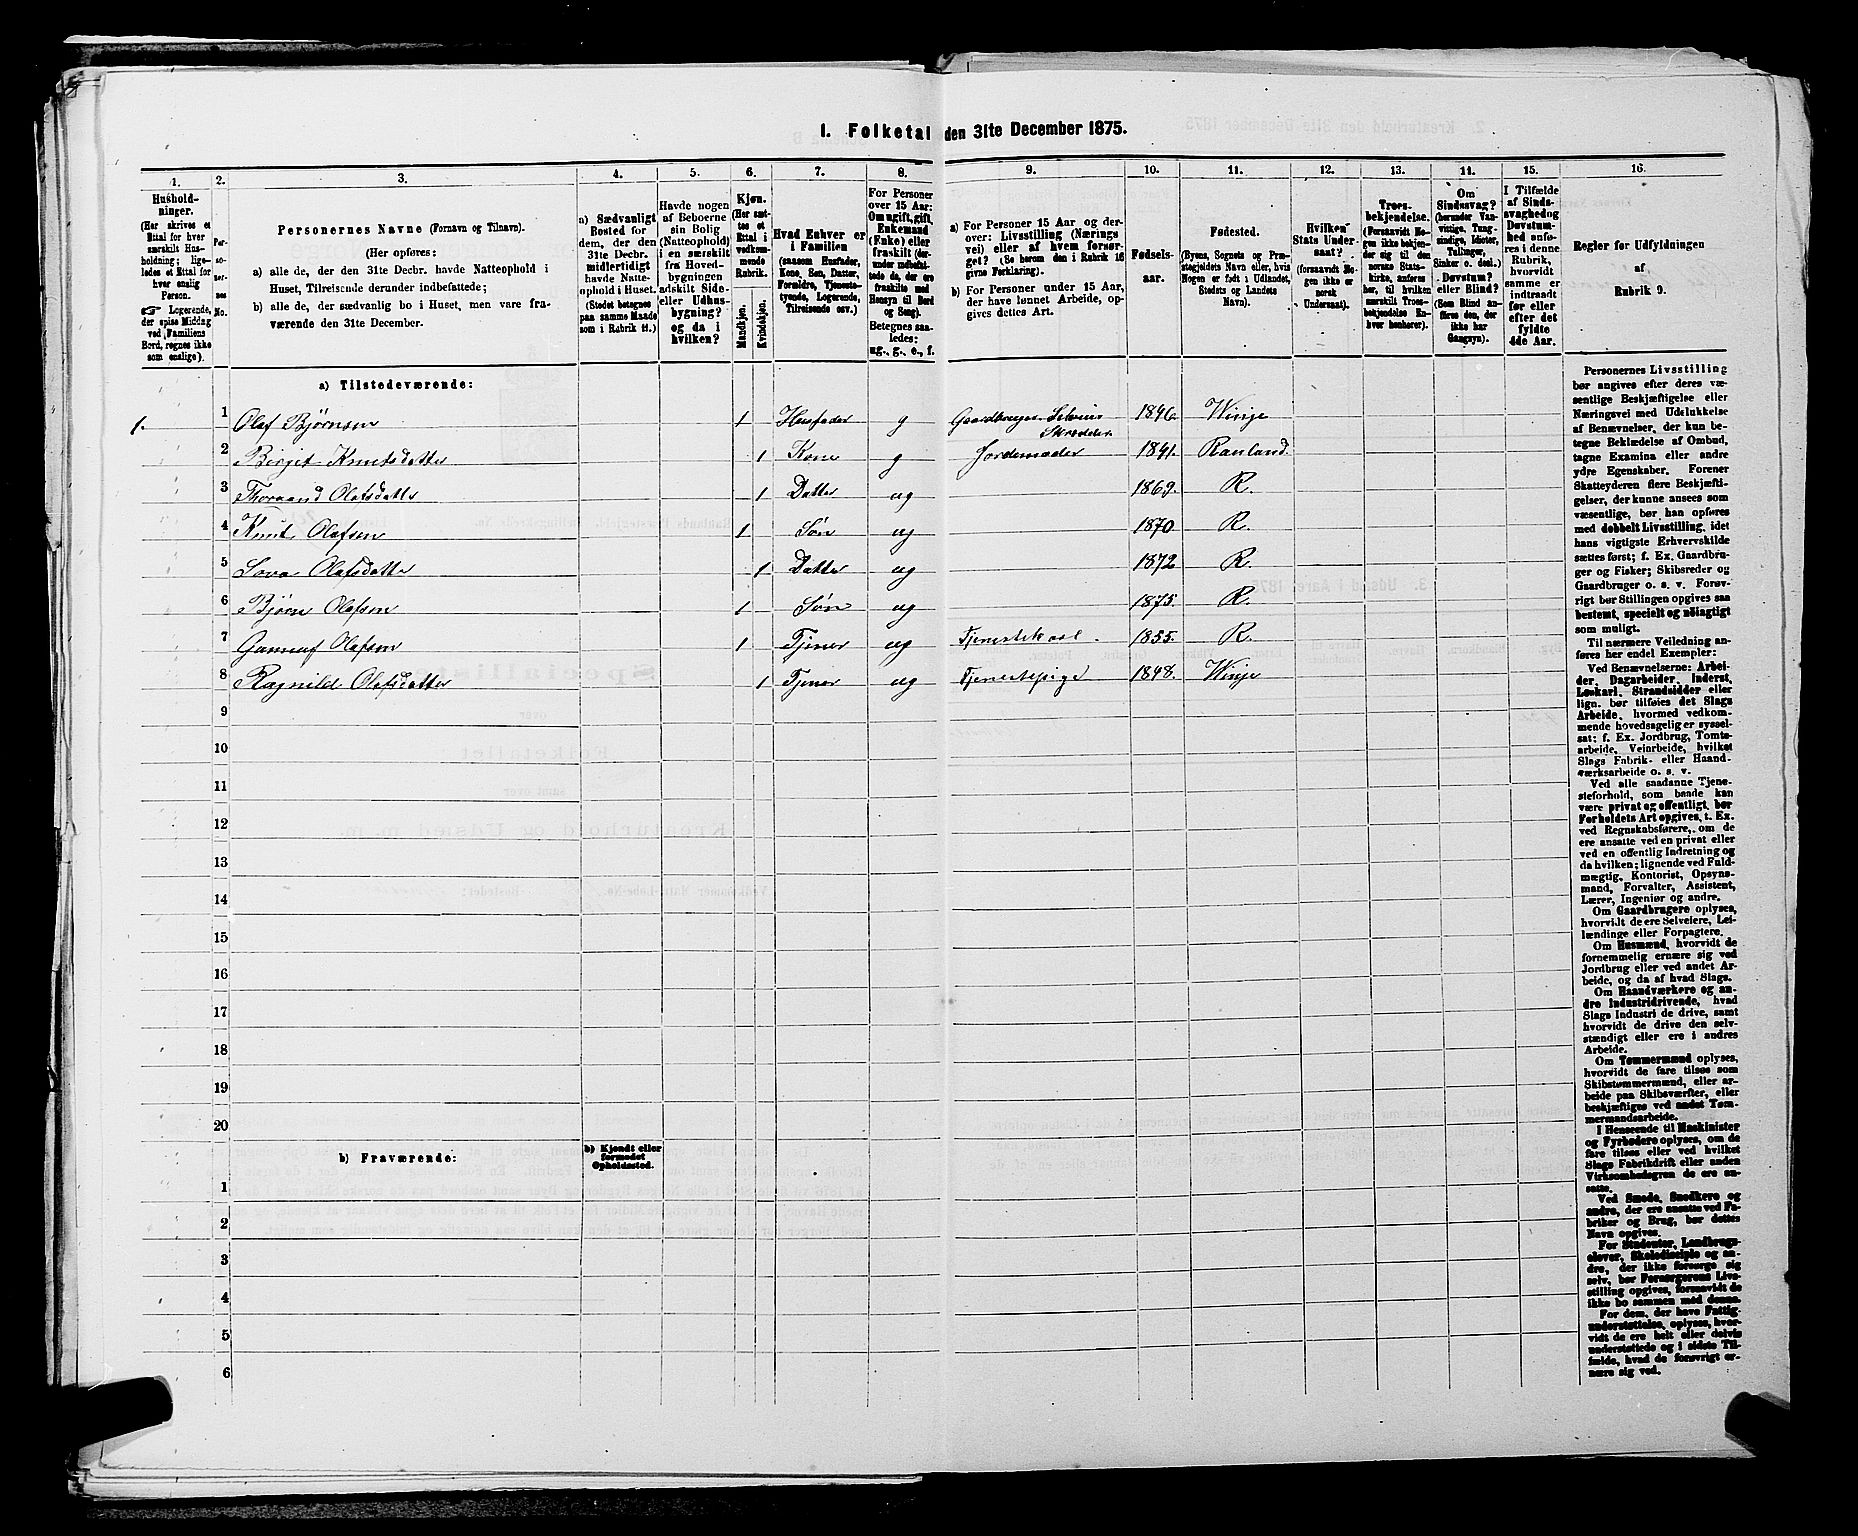 I. Folketal den 31te December 1875.
1. 2. 3. 4. 5. 6. 7. 8. 9. 10. 11. 12. 13. 14. 15. 16.
Husholdninger.
(Her skrives et
Ettal for hver
særskilt Husholdning;
ligeledes et Ettal for
hver enslig
Person.
☞ Logerende,
der spise Middag
ved Familiens
Bord, regnes ikke
som enslige).
Personernes No.
Personernes Navne (Fornavn og Tilnavn).
(Her opføres:
a) alle de, der den 31te Decbr. havde Natteophold i
Huset, Tilreisende derunder indbefattede;
b) alle de, der sædvanlig bo i Huset, men vare fraværende
den 31te December.
a) Sædvanligt
Bosted for
dem, der den
31te Decbr.
midlertidigt
havde Natteophold
i Huset.
(Stedet betegnes
paa samme Maade
som i Rubrik 11.)
Havde nogen
af Beboerne
sin Bolig
(Natteophold)
i en særskilt
fra Hovedbygningen
adskilt Side-
eller Udhusbygning?
og da i
hvilken?
Kjøn.
(Her sættes
et
Ettal i
vedkommende
Rubrik.
Mandkjøn.
Kvindekjøn.
Hvad Enhver er
i Familien
(saasom Husfader,
Kone, Søn, Datter,
Forældre, Tjenestetyende,
Logerende,
Tilreisende osv.)
For Personer
over 15 Aar:
Om ugift, gift,
Enkemand
(Enke) eller
fraskilt (derunder
indbefattede
da, de ere
fraskilte med
Hensyn til Bord
og Seng).
Betegnes saaledes:
ug., g., e., f.
a) For Personer 15 Aar og derover:
Livsstilling (Næringsvei)
eller af hvem forsørget?
(Se herom den i Rubrik 16
givne Forklaring).
b) For Personer under 15 Aar,
der have lønnet Arbeide, opgives
dettes Art.
Fødselsaar.
Fødested.
(Byens, Sognets og Præstegjeldets
Navn, eller, hvis
Nogen er født i Udlandet,
Stedets og Landets
Navn).
Hvilken
Stats Undersaat?
(forsaavidt Nogen
ikke er
norsk
Undersaat).
Troesbekjendelse.
(Forsaavidt Nogen
ikke bekjender
sig til den
norske Statskirke,
anføres
her, til hvilken
særskilt Troesbekjendelse
Enhver
henhører).
Om
Sindssvag?
(herunder Vanvittige,
Tungsindige,
Idioter,
Tullinger,
Sinker o. desl.)
Døvstum?
eller Blind?
(Som Blind anføres
den, der
ikke har
Gangsyn).
I Tilfælde
af Sindssvaghed
og
Døvstumhed
anføres
i denne
Rubrik,
hvorvidt
samme er
indtraadt
før eller
efter det
fyldte
4de Aar.
Regler for Udfyldningen
af
Rubrik 9.
a) Tilstedeværende:
1. 1 Olaf Bjørnsen 1 Husfader g Gaardbruger Selveier Skredder 1846. Winje
2 Birgit Knutsdatter 1 Kone g Jordemoder 1841. Rauland.
3 Thorand Olafsdatter 1 Datter ug 1869. R.
4 Knut Olafsen 1 Søn ug 1870 R.
5 Sova Olafsdatter 1 Datter ug 1872 R.
6 Bjørn Olafsen 1 Søn ug 1875. R.
7 Gunnuf Olafsen 1 Tjener ug Tjenestekarl. 1855. R.
8 Ragnild Olafsdatter 1 Tjener ug Tjenestepige 1848. Winje
9
10
11
12
13
14
15
16
17
18
19
20
b) Fraværende:
b) Kjendt eller
formodet
Opholdssted.
1
2
3
4
5
6
Personernes Livsstilling
bør angives efter deres væsentlige
Beskjæftigelse eller
Næringsvei med Udelukkelse
af Benævnelser, der kun betegne
Beklædelse af Ombud,
tagne Examina eller andre
ydre Egenskaber. Forener
Skatteyderen flere Beskjæftigelser,
der kunne ansees som
væsentlige, bør han opføres
med dobbelt Livsstilling, idet
hans vigtigste Erhvervskilde
sættes først; f. Ex. Gaardbruger
og Fisker; Skibsreder og
Gaardbruger o. s. v. Forøvrigt
bør Stillingen opgives saa
bestemt, specielt og nöiagtigt
som muligt.
Til nærmere Veiledning anføres
her endel Exempler:
Ved Benævnelserne: Arbeider,
Dagarbeider, Inderst,
Løskarl, Strandsidder eller
lign. bør tilføies det Slags
Arbeide, hvormed vedkommende
hovedsagelig er sysselsat;
f. Ex. Jordbrug, Tomtearbeide,
Veiarbeide, hvilket
Slags Fabrik- eller Haandværksarbeide
o. s. v.
Ved alle saadanne Tjenesteforhold,
som baade kan
være privat og offentligt, bør
Forholdets Art opgives, t. Ex.
ved Regnskabsførere, om de
ere ansatte ved en privat eller
ved en offentlig Indretning og
da hvilken; lignende ved Fuldmægtig,
Kontorist, Opsynsmand,
Forvalter, Assistent,
Lærer, Ingeniør og andre.
Om Gaardbrugere oplyses,
hvorvidt de ere Selveiere, Leilændinge
eller Forpagtere.
Om Husmænd, hvorvidt de
fornemmelig ernære sig ved
Jordbrug eller ved andet Arbeide,
og da af hvad Slags.
Om Haandværkere og andre
Industridrivende, hvad
Slags Industri de drive, samt
hvorvidt de drive den selvstændigt
eller ere i andres
Arbeide.
Om Tømmermænd oplyses,
hvorvidt de fare tilsøs som
Skibstømmermænd, eller arbeide
paa Skibsværfter, eller
beskjæftiges ved andet Tømmermandsarbeide.
I Henseende til Maskinister
og Fyrbødere oplyses, om de
fare tilsøs eller ved hvilket
Slags Fabrikdrift eller anden
Virksomhedsgren de ere ansatte.
Ved Smede, Snedkere og
andre, der ere ansatte ved Fabriker
og Brug, bør dettes
Navn opgives.
For Studenter, Landbrugselever,
Skoledisciple og andre,
der ikke forsørge sig
selv, bør Forsørgerens Livsstilling
opgives, forsaavidt de
ikke bo sammen med denne.
For dem, der have Fattigunderstøttelse,
oplyses, hvorvidt
de ere helt eller delvis
understøttede og i sidste Tilfælde,
hvad de forøvrigt ernære
sig ved.